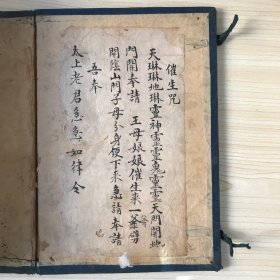 催生咒
天琳琳地琳靈神靈靈鬼靈靈天門開地
門開奉請王母娘娘催生來一
開陰山門子母分身便下來急請奉請
吾奉
太上老君急急如律令